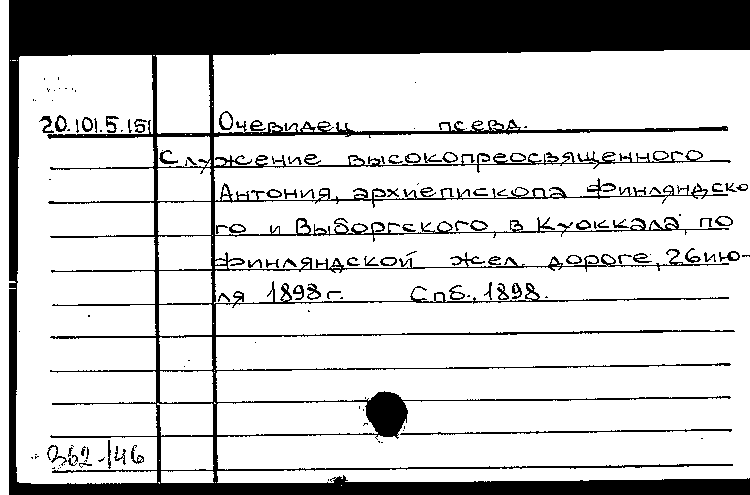 20.101.5.151 Очевидец псевд.
Служение высокопреосвященного
Антония, архиепископа Финляндско
го и Выборгского, в Куоккала, по
Финляндской жел. дороге, 26 ию-
ля 1898 г. Спб., 1898.
362-146